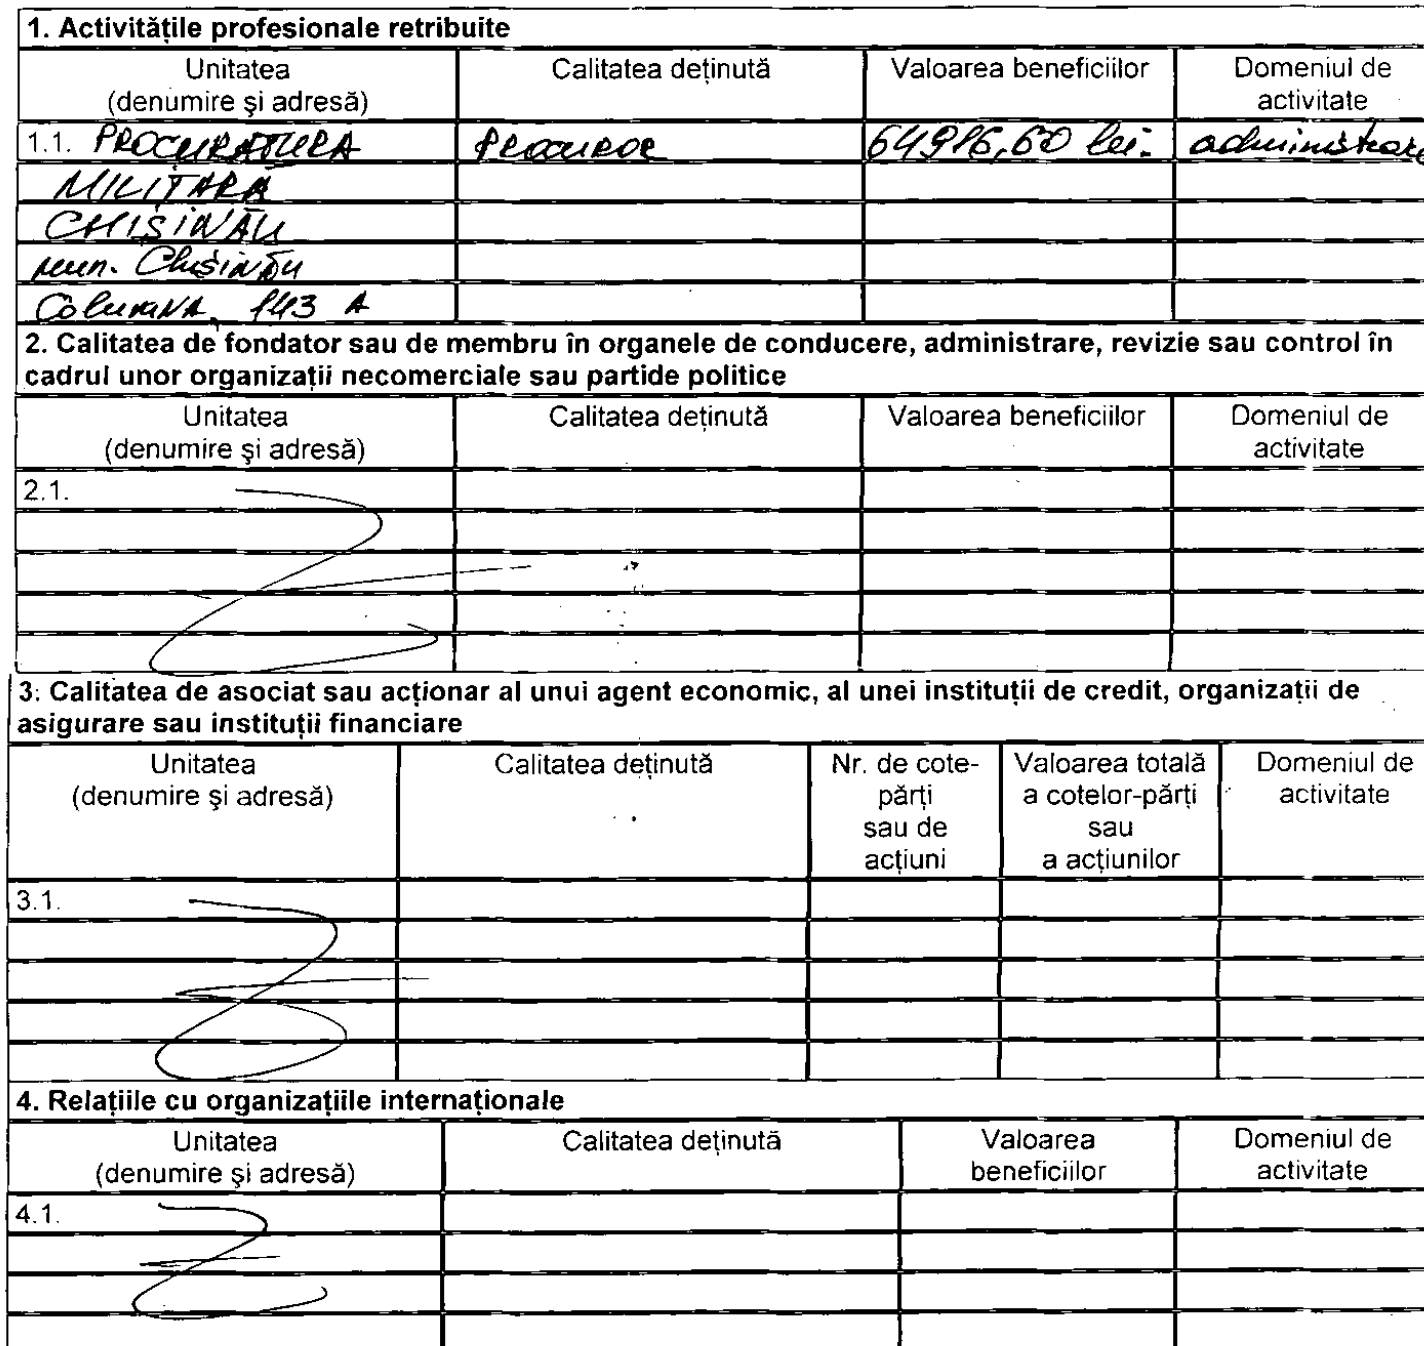 1. Activitățile profesionale retribuite
Unitatea
(denumire şi adresă)
Calitatea deținută
Valoarea beneficiilor
Domeniul de
activitate
1.1. PROCURATURA
PROCUROR
lei.
administrare
MILITARĂ
CHIŞINĂU
mun. Chişinău
Columna, 143 A
2. Calitatea de fondator sau de membru în organele de conducere, administrare, revizie sau control în
cadrul unor organizații necomerciale sau partide politice
Unitatea
(denumire şi adresă)
Calitatea deținută
Valoarea beneficiilor
Domeniul de
activitate
2.1.
3. Calitatea de asociat sau acționar al unui agent economic, al unei instituții de credit, organizații de
asigurare sau instituții financiare
Unitatea
(denumire şi adresă)
Calitatea deținută
Nr. de cote-
părți
sau de
acțiuni
Valoarea totală
a cotelor-părți
sau
a acțiunilor
Domeniul de
activitate
3.1.
4. Relațiile cu organizațiile internaționale
Unitatea
(denumire şi adresă)
Calitatea deținută
Valoarea
beneficiilor
Domeniul de
activitate
4.1.